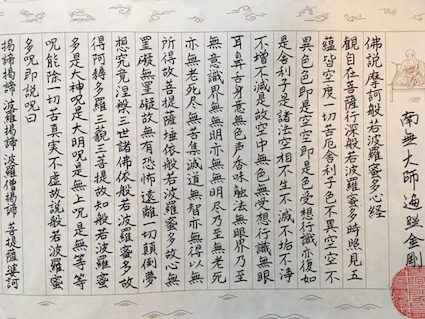 南無大師遍照金剛
佛説摩訶般若波羅蜜多心經
觀自在菩薩行深般若波羅蜜多時照見五
蘊皆空度一切苦厄舍利子色不異空空不
異色色即是空空即是色受想行識亦復如
是舍利子是諸法空相不生不滅不垢不淨
不增不減是故空中無色無受想行識無眼
耳鼻舌身意無色声香味触法無眼界乃至
無意識界無無明亦無無明尽乃至無老死
亦無老死尽無苦集滅道無智亦無得以無
所得故菩提薩埵依般若波羅蜜多故心無
罣礙無罣礙故無有恐怖遠離一切顛倒夢
想究竟涅槃三世諸佛依般若波羅蜜多故
得阿耨多羅三藐三菩提故知般若波羅蜜
多是大神呪是大明呪是無上呪是無等等
呪能除一切苦真実不虚故説般若波羅蜜
多呪即説呪曰
揭諦揭諦 波羅揭諦 波羅僧揭諦 菩提薩婆訶